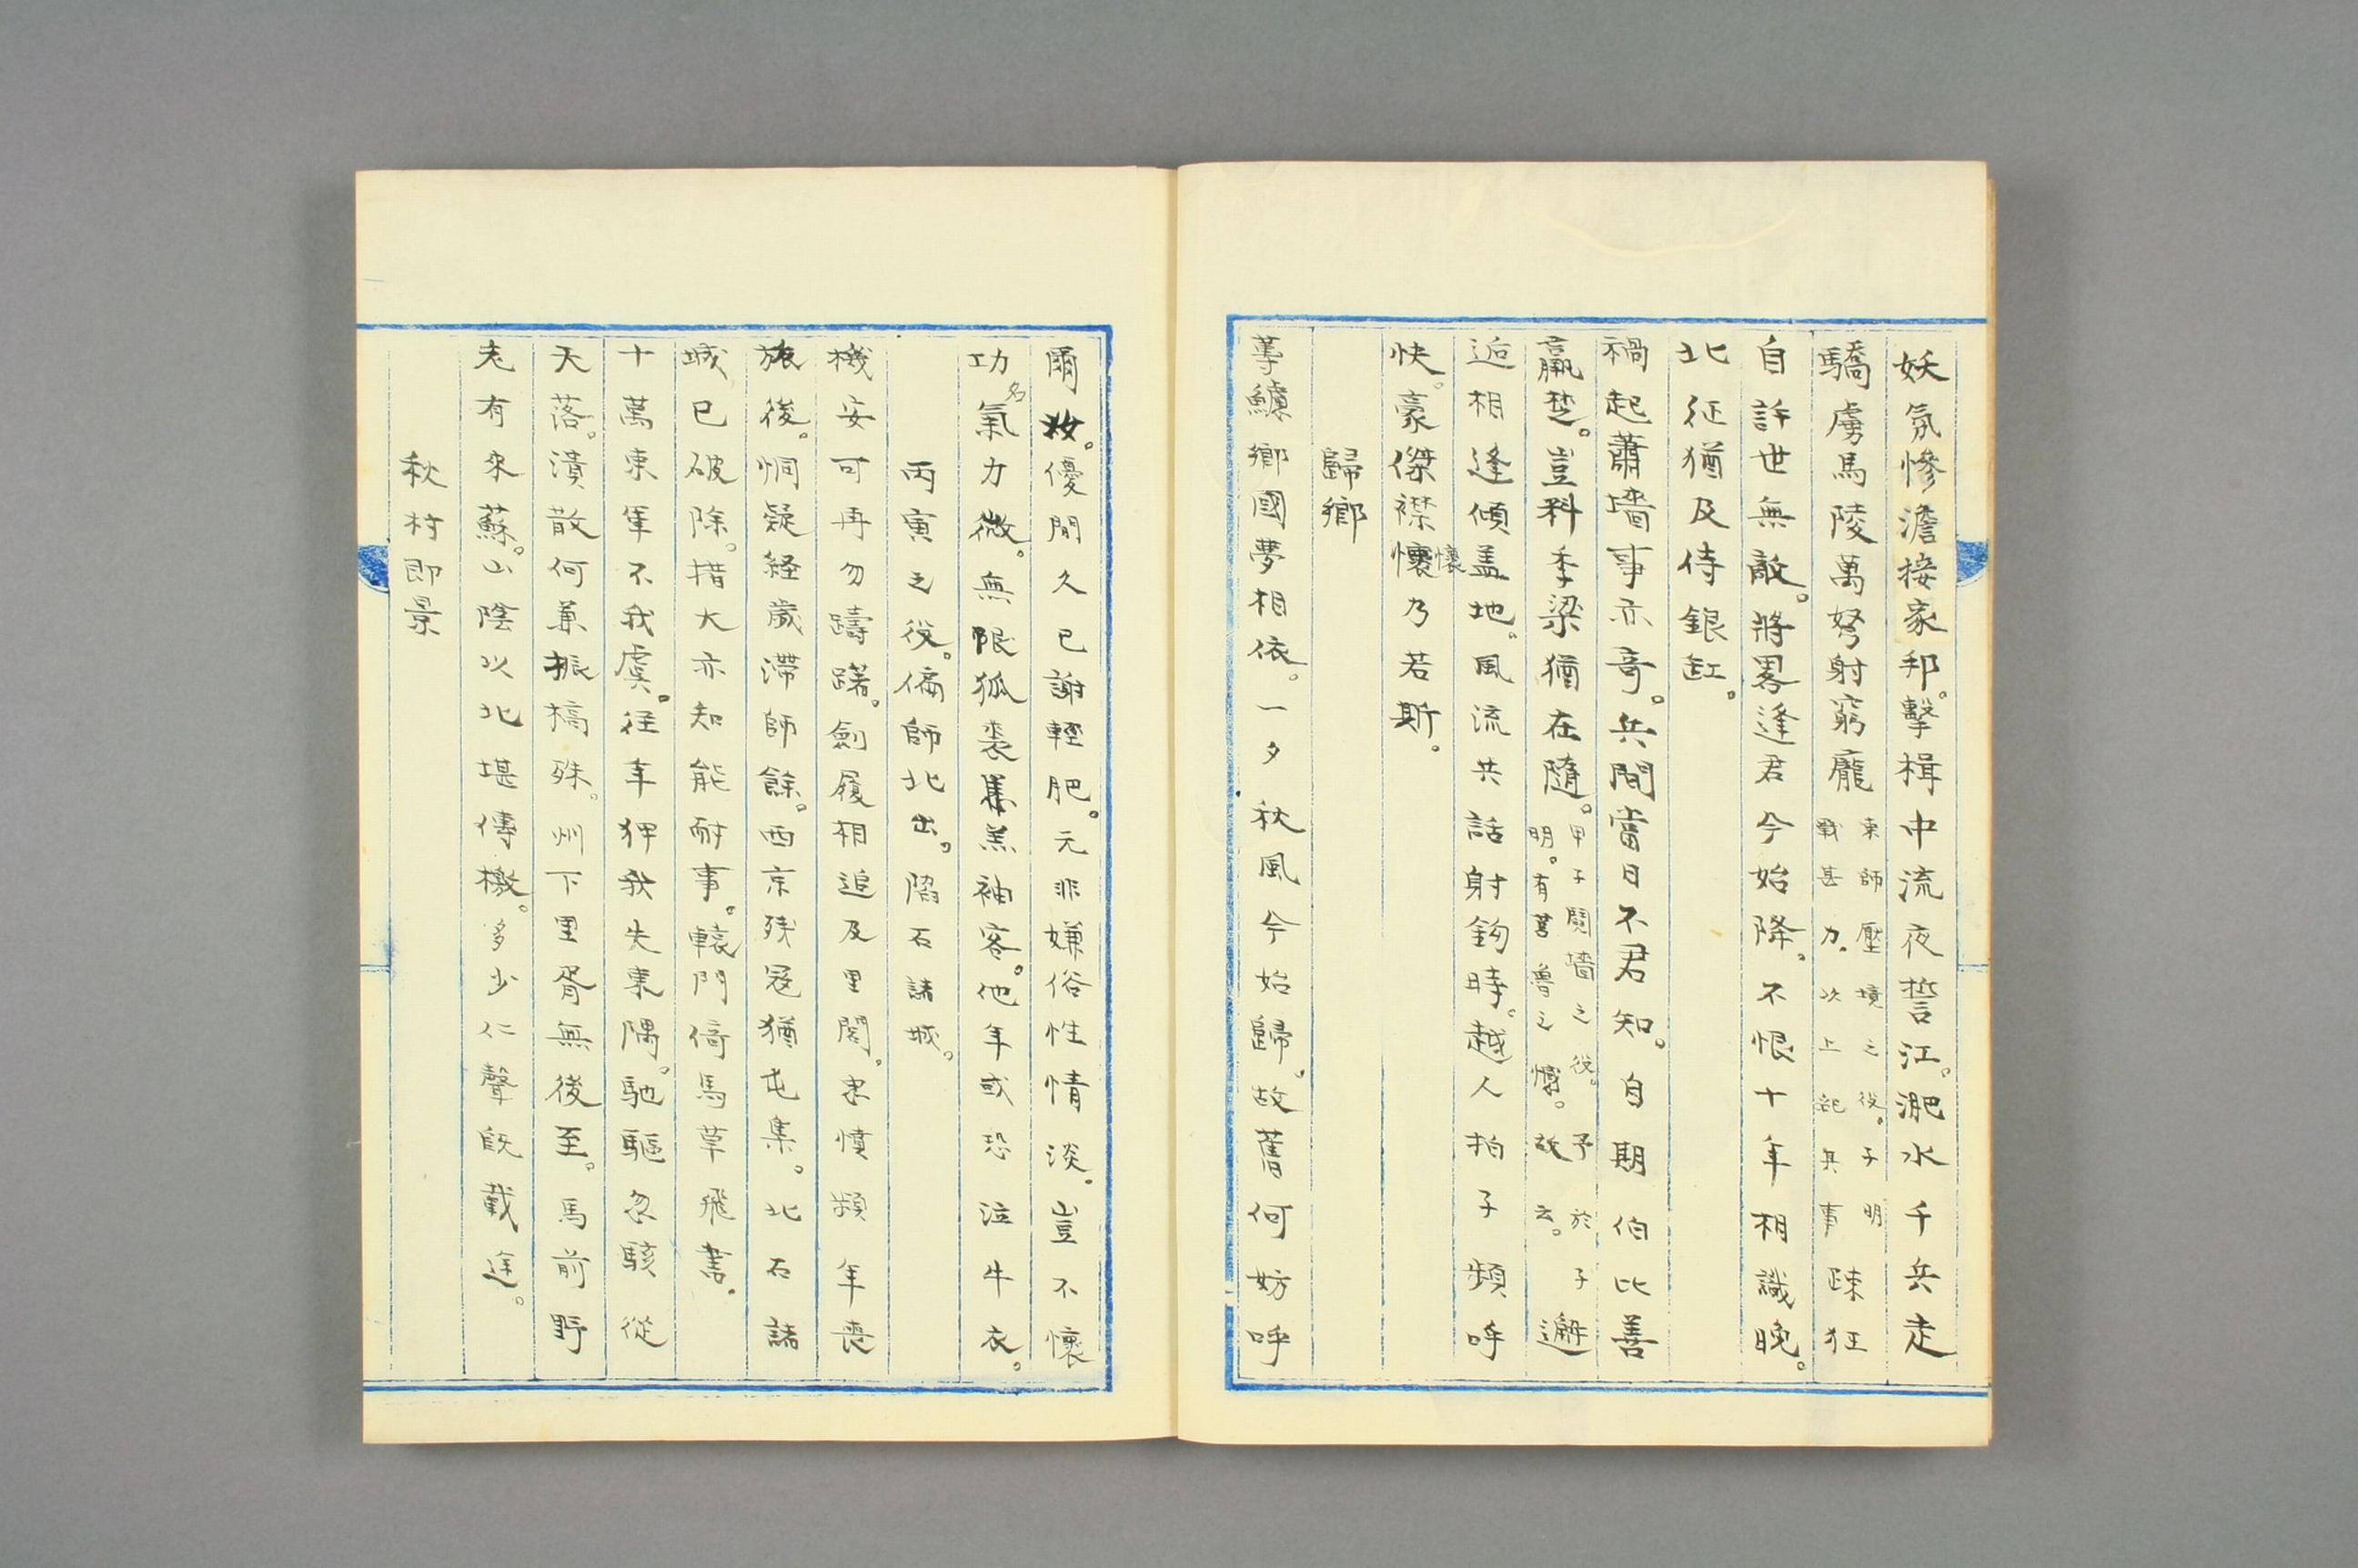 妖氛慘澹接家邦。擊楫中流夜誓江。淝水千兵走
驕虜馬陵萬弩射窮龐
東師壓境之役。子明踈狂
戰甚力。次上記兵事
自許世無敵。將畧逢君今始降。不恨十年相識晚。
北征猶及侍銀缸。
禍起蕭墻事亦奇。兵間當日不君知。自期伯比善
羸楚。豈料季梁猶在隨。
甲子鬩墻之役。予於子邂
明。有莒魯之懷。故云。
逅相逢傾盖地。風流共話射鉤時。越人拍子頻呼
懷
快。豪傑襟懷乃若斯。
歸鄉
蓴鱸鄉國夢相依。一夕秋風今始歸。故舊何妨呼
爾汝。優閒久已謝輕肥。元非嫌俗性情淡。豈不懷
名
功氣力微。無限狐裘集羔袖客。他年或恐泣牛衣。
丙寅之役。偏師北出。陷石諸城。
機安可再勿躊躇。劍履相追及里閭。求憤頻年喪
旅後。恫疑経歲滯師餘。西京残冦猶屯集。北石諸
城已破除。措大亦知能耐事。轅門倚馬草飛書。
十萬東軍不我虞。往年狎我失東隅。馳驅忽駭從
天落。潰散何兼振槁殊。州下里胥無後至。馬前野
老有來蘇。山陰以北堪傳檄。多少仁聲既載途。
秋村即景